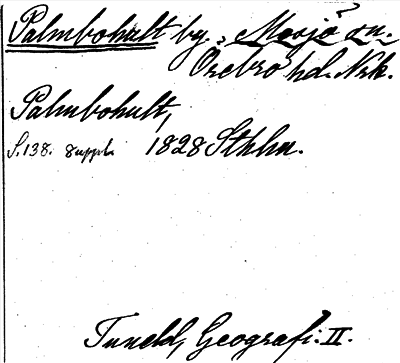 Palmbohult by, Mosjö sn.
Örebro hd. Nrk.
Palmbohult,
S. 138. suppl. 1828 Sthlm.
Tuneld, Geografi. II.